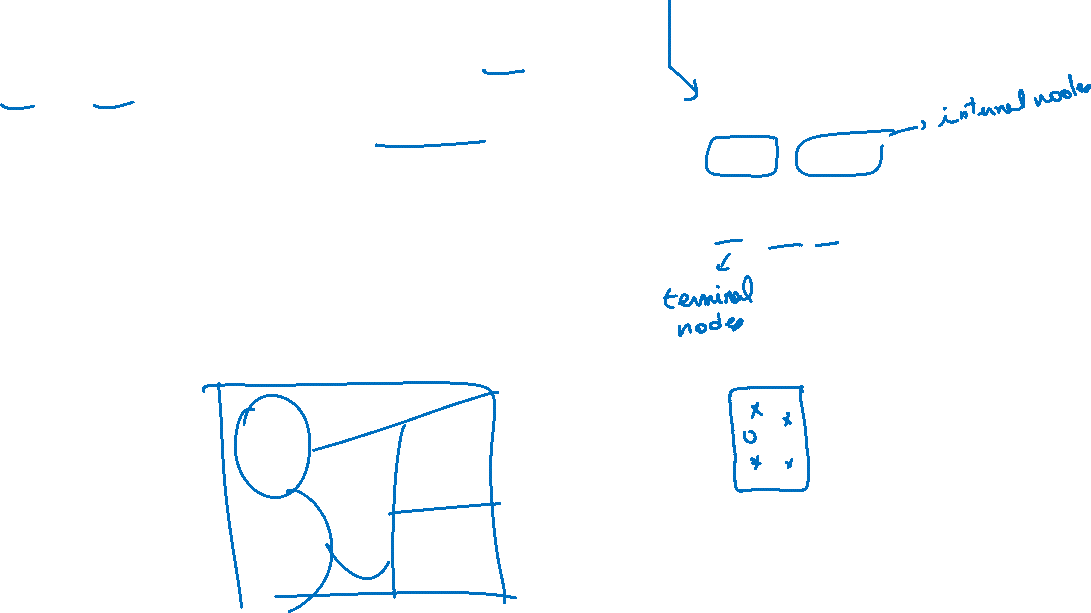 internal nodes
terminal
nodes